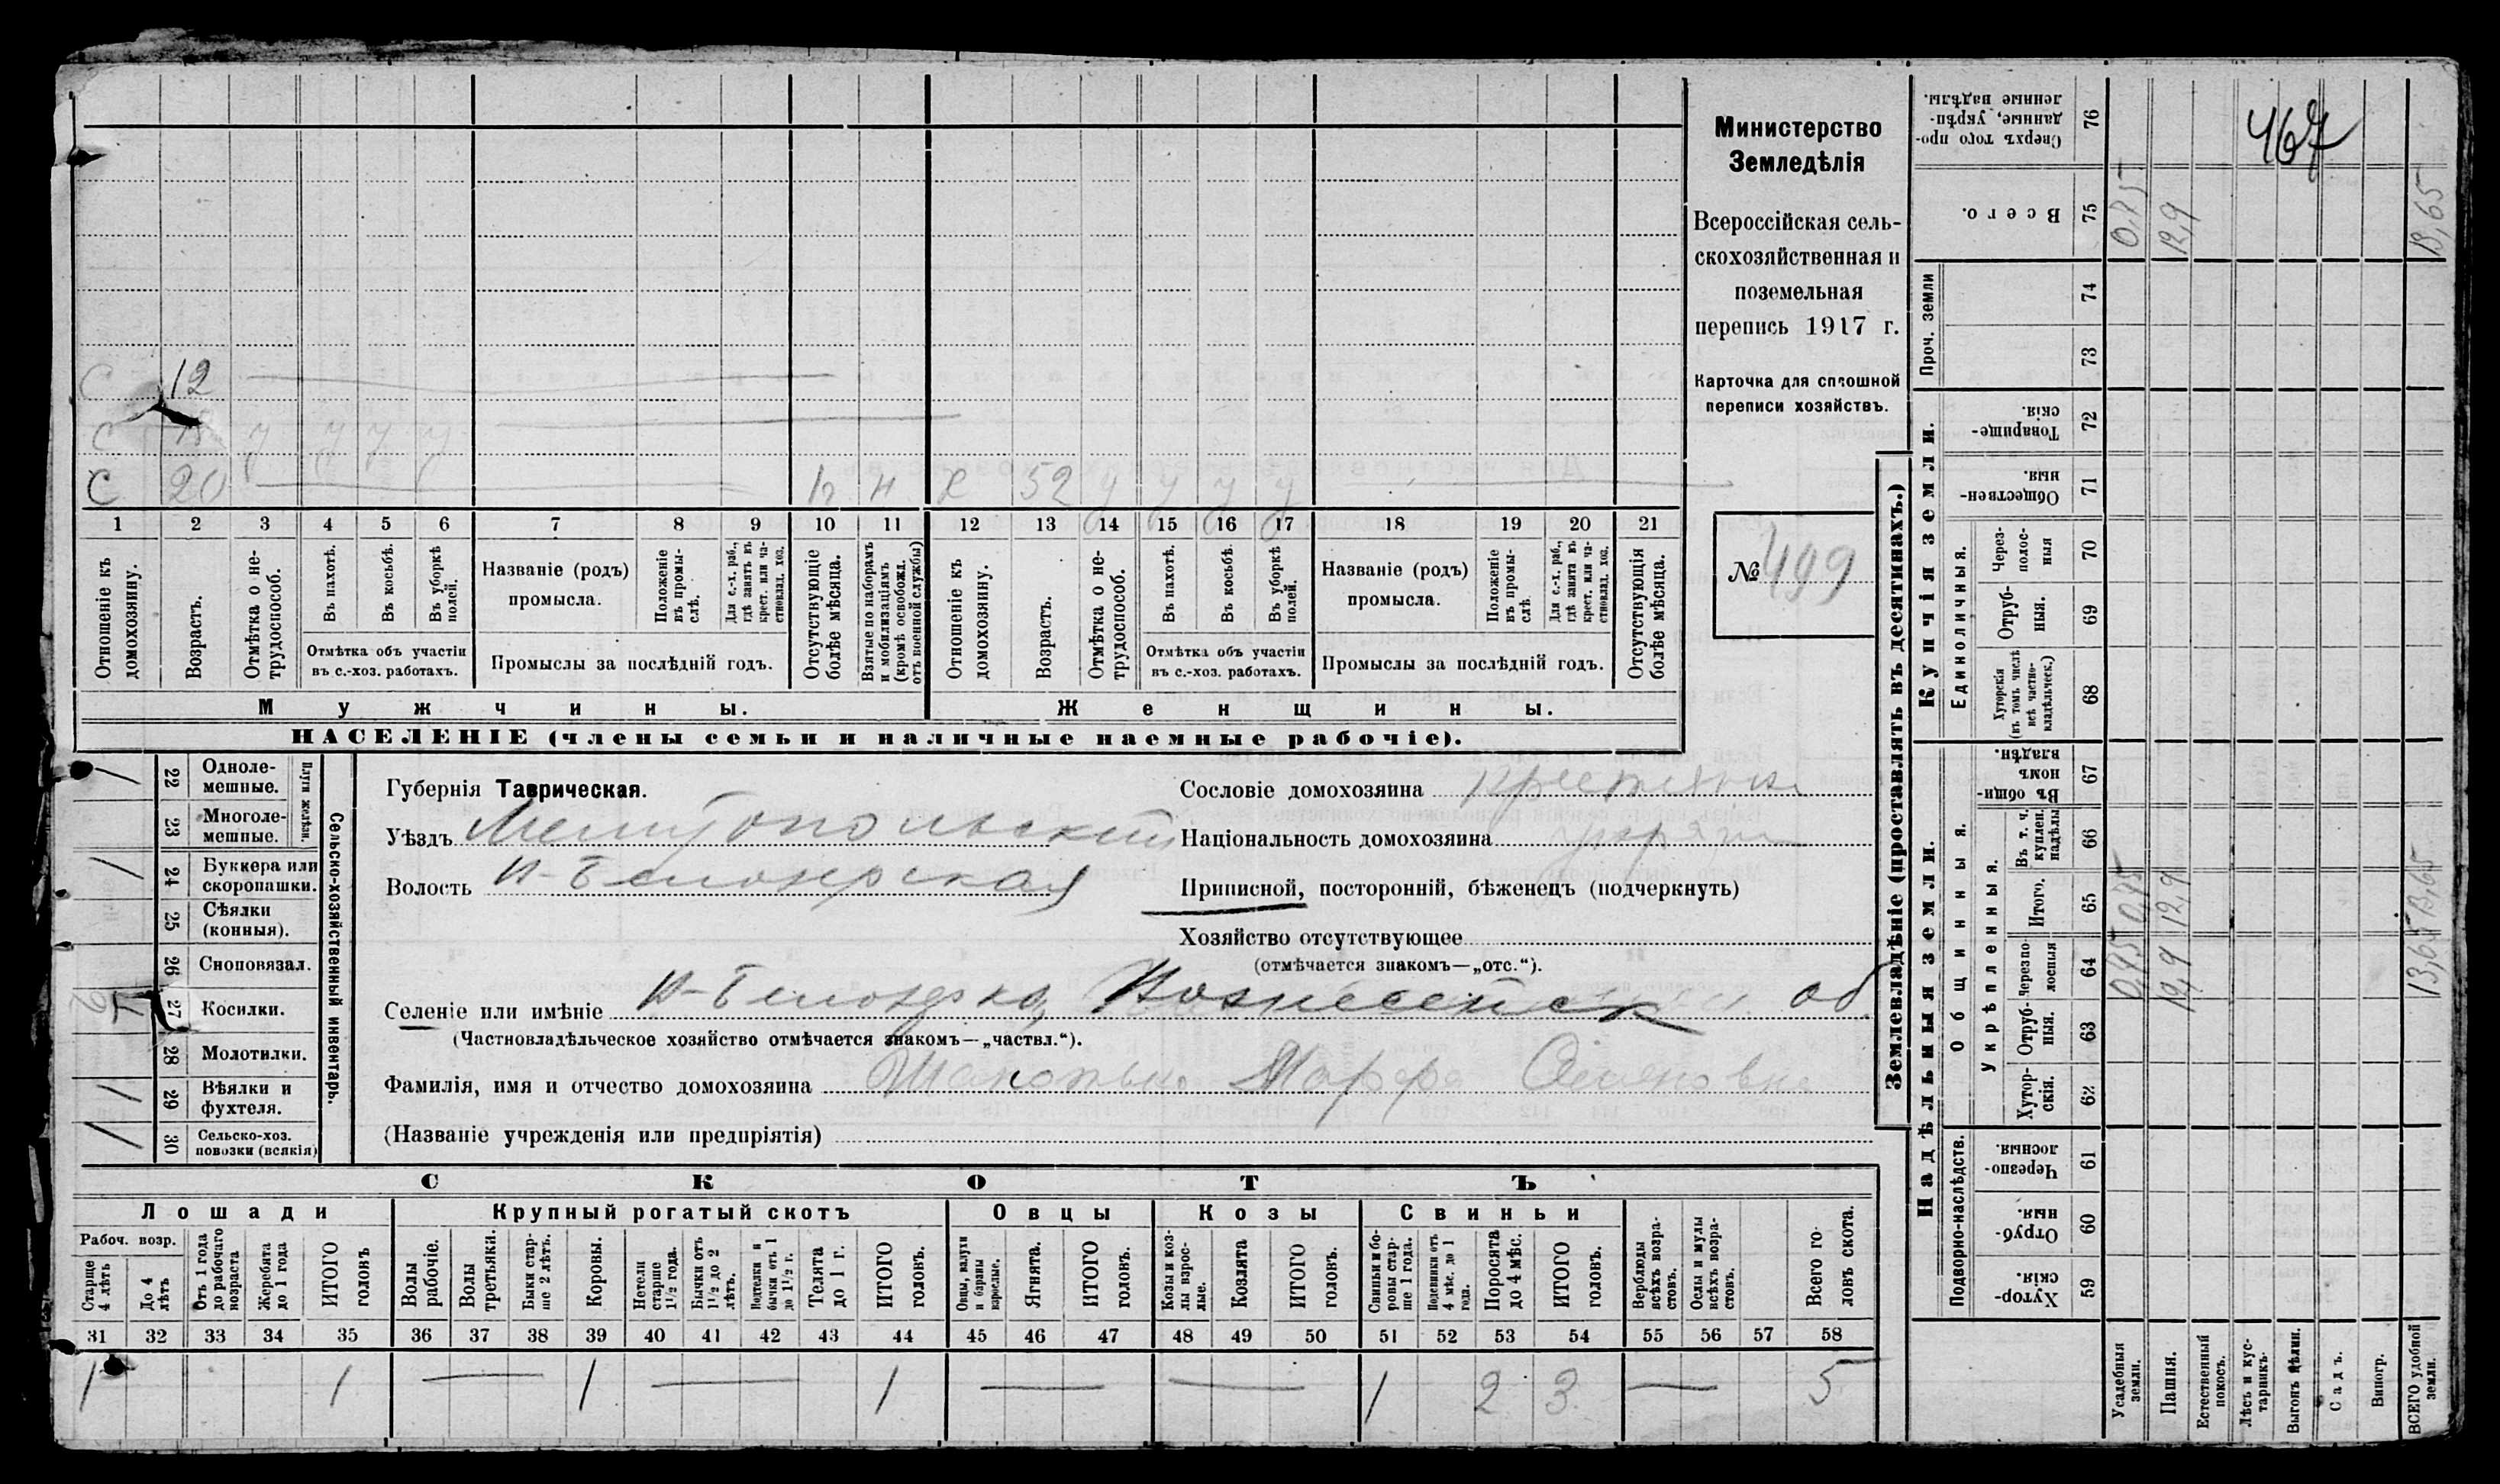 467
Министерство
Земледѣлія
Всероссійская сель-
скохозяйственная и
поземельная
перепись 1917 г.
Карточка для сплошной
переписи хозяйствъ.
№ 499
С 12
С у у у у
С 20 н 52 у у у у
1 2 3 4 5 6 7 8 9 10 11 12 13 14 15 16 17 18 19 20 21
Отношеніе къ домохозяину.
Возрастъ.
Отмѣтка о не-трудоспособ.
Въ пахотѣ.
Въ косьбѣ.
Въ уборкѣ полей.
Отмѣтка объ участіи
въ с.-хоз. работахъ.
Названіе (родъ)
промысла.
Положеніе въ промы-слѣ.
Для с.-х. раб., гдѣ занятъ въ крест. или ча-стновлад. хоз.
Промыслы за послѣдній годъ.
Отсутствующіе болѣе мѣсяца.
Взятые по наборамъ и мобилизаціямъ (кромѣ освобожд. отъ военной службы)
Отношеніе къ домохозяину.
Возрастъ.
Отмѣтка о не-трудоспособ.
Въ пахотѣ.
Въ косьбѣ.
Въ уборкѣ полей.
Отмѣтка объ участіи
въ с.-хоз. работахъ.
Названіе (родъ)
промысла.
Положеніе въ промы-слѣ.
Для с.-х. раб., гдѣ занята въ крест. или ча-стновлад. хоз.
Промыслы за послѣдній годъ.
Отсутствующія болѣе мѣсяца.
Мужчины.
Женщины.
НАСЕЛЕНІЕ (члены семьи и наличные наемные рабочіе).
Сельско-хозяйственный инвентарь.
Плуги желѣзн.
22 Одноле-мешные. /
23 Многоле-мешные.
24 Буккера или скоропашки. /
25 Сѣялки (конныя).
26 Сноповязал.
27 Косилки.
28 Молотилки.
29 Вѣялки и фухтеля. /
30 Сельско-хоз. повозки (всякія) /
Губернія Таврическая.
Уѣздъ Мелитопольский
Волость Н-Белозерская
Сословіе домохозяина крестьян
Національность домохозяина
Приписной, посторонній, бѣженецъ (подчеркнуть)
Хозяйство отсутствующее
(отмѣчается знакомъ—„отс.“).
Селеніе или имѣніе Н-Белозерка, Вознесенск об
(Частновладѣльческое хозяйство отмѣчается знакомъ—„частвл.“).
Фамилія, имя и отчество домохозяина Марфа
(Названіе учрежденія или предпріятія)
СКОТЪ
Лошади
Крупный рогатый скотъ
Овцы
Козы
Свиньи
Рабоч. возр.
Старше 4 лѣтъ
До 4 лѣтъ
Отъ 1 года до рабочаго возраста
Жеребята до 1 года
ИТОГО головъ
Волы рабочіе.
Волы третьяки.
Быки стар-ше 2 лѣтъ.
Коровы.
Нетели старше 1½ года.
Бычки отъ 1½ до 2 лѣтъ.
Подтелки и бычки отъ 1 до 1½ г.
Телята до 1 г.
ИТОГО головъ.
Овцы, валухи и бараны взрослые.
Ягнята.
ИТОГО головъ.
Козы и коз-лы взрос-лые.
Козлята
ИТОГО головъ.
Свиньи и бо-ровы стар-ше 1 года.
Подсвинки отъ 4 мѣс. до 1 года.
Поросята до 4 мѣс.
ИТОГО головъ.
Верблюды всѣхъ возра-стовъ.
Ослы и мулы всѣхъ возра-стовъ.
Всего го-ловъ скота.
31 32 33 34 35 36 37 38 39 40 41 42 43 44 45 46 47 48 49 50 51 52 53 54 55 56 57 58
1 1 — 1 — 1 — — 1 2 3 — 5
Землевладѣніе (проставлять въ десятинахъ.)
Надѣльныя земли.
Купчія земли.
Проч. земли
Подворно-наслѣдств.
Общинныя.
Укрѣпленныя.
Единоличныя.
76 Сверхъ того про-данные, укрѣп-ленные надѣлы.
75 Всего. 12,9 13,65
74
73
72 Товарище-скія.
71 Обществен-ныя.
70 Через-полос-ныя
69 Отруб-ныя.
68 Хуторскія (въ томъ числѣ всѣ частно-владѣльческ.)
67 Въ общи-номъ владѣн.
66 Въ т. ч. куплен. надѣлы
65 Итого. 12,9 13,65
64 Черезпо-лосныя 12,9 13,65
63 Отруб-ныя.
62 Хутор-скія.
61 Черезпо-лосныя.
60 Отруб-ныя.
59 Хутор-скія.
Усадебныя земли.
Пашня.
Естественный покосъ.
Лѣсъ и кус-тарникъ.
Выгонъ цѣлин.
Садъ.
Виногр.
ВСЕГО удобной земли.